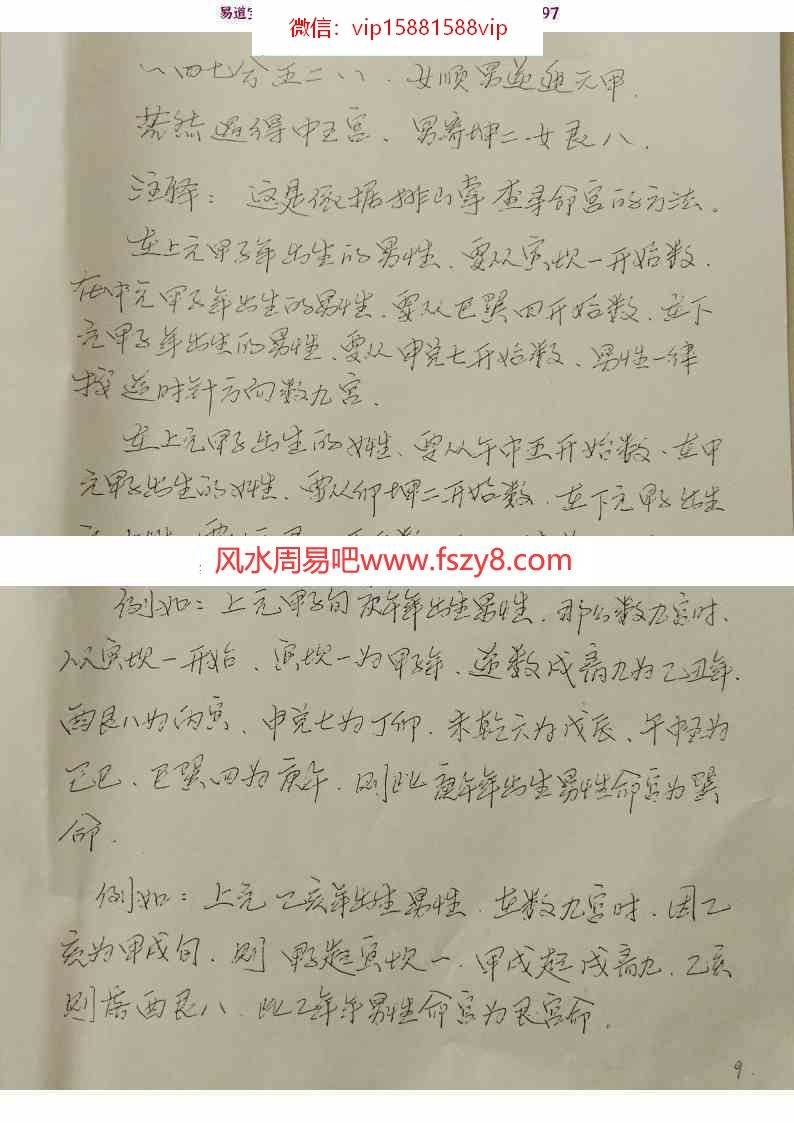 易道
97
微信：vip15881588vip
一四七分五二八．女顺男逆起元甲．
若然遇得中五宫、男寄坤二女艮八．
注释：这是依据排山掌查寻命宫的方法。
在上元甲子年出生的男性、要从寅坎一开始数．
在中元甲子年出生的男性、要从巳巽四开始数．在下
元甲子年出生的男性、要从申兑七开始数、男性一律
按逆时针方向数九宫．
在上元甲子出生的女性、要从午中五开始数、在中
元甲子出生的女性、要从卯坤二开始数、在下元甲子出生
风水周易吧www.fszy8.com
例如：上元甲子旬庚午年出生男性．那么数九宫时．
从寅坎一开始、寅坎一为甲子年．逆数戌离九为乙丑年．
酉艮八为丙寅、申兑七为丁卯．未乾六为戊辰、午中五为
己巳、巳巽四为庚午．则此庚午年出生男性命宫为巽
命．
例如：上元乙亥年出生男性．在数九宫时．因乙
亥为甲戌旬．则甲子起寅坎一．甲戌起戌离九．乙亥
则落酉艮八．此乙年男性命宫为艮宫命．
9.